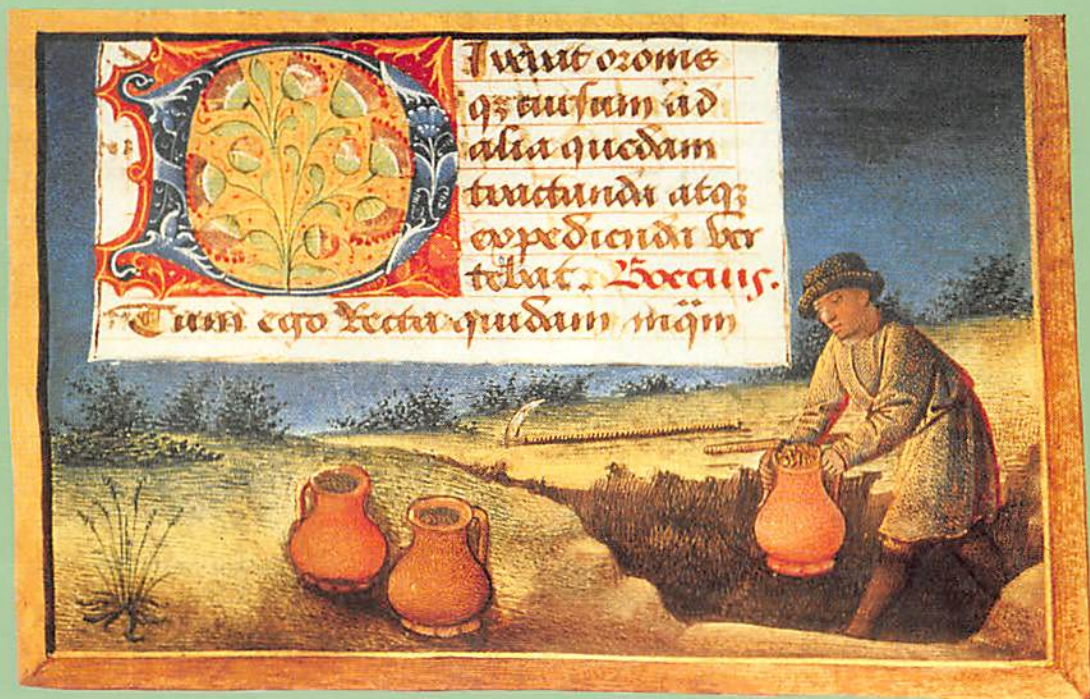 Dixerat oroms
qz cursum ad
alia quedam
tractanda atqz
expedienda ver
tebat. Boecius.
Tum ego Recta quidam inqm